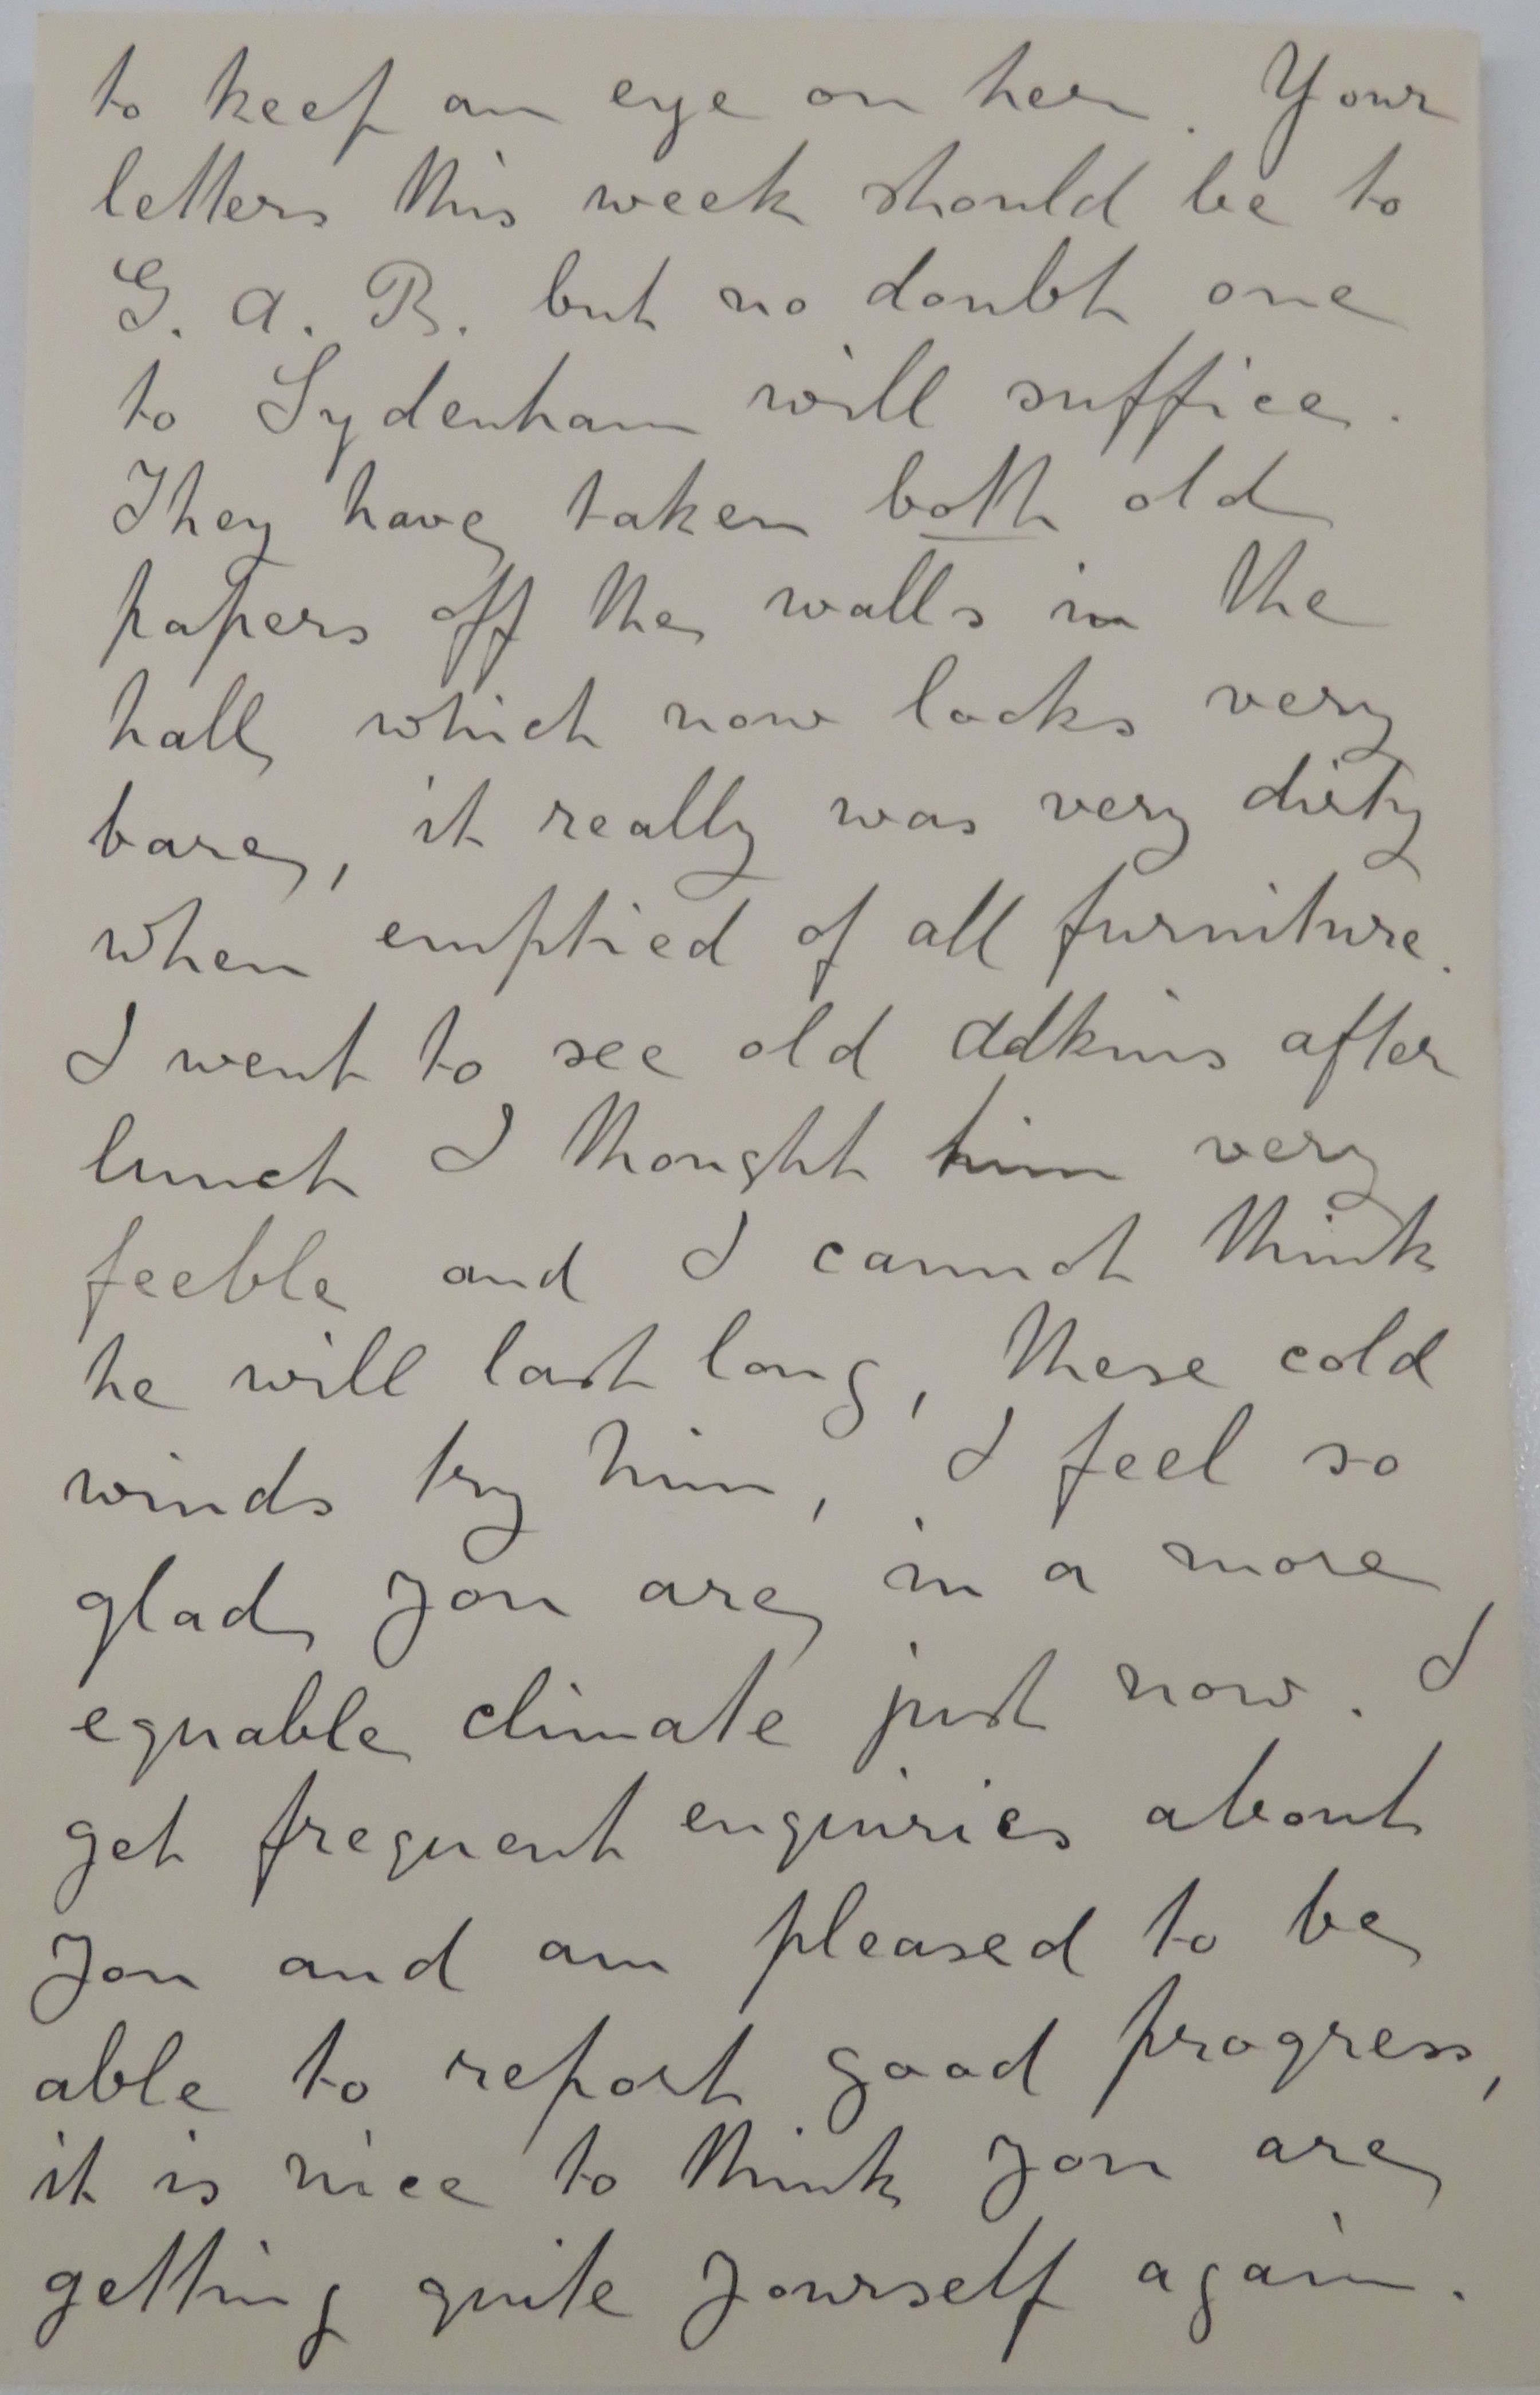 to keep an eye on her. Your
letters this week should be to
G. A. B. but no doubt one
to Sydenham will suffice.
They have taken both old
papers off the walls in the
hall which now looks very
bare, it really was very dirty
when emptied of all furniture.
I went to see old Adkins after
lunch I thought him very
feeble and I cannot think
he will last long, these cold
winds try him, I feel so
glad you are in a more
equable climate just now. I
get frequent enquiries about
you and am pleased to be
able to report good progress,
it is nice to think you are
getting quite yourself again.